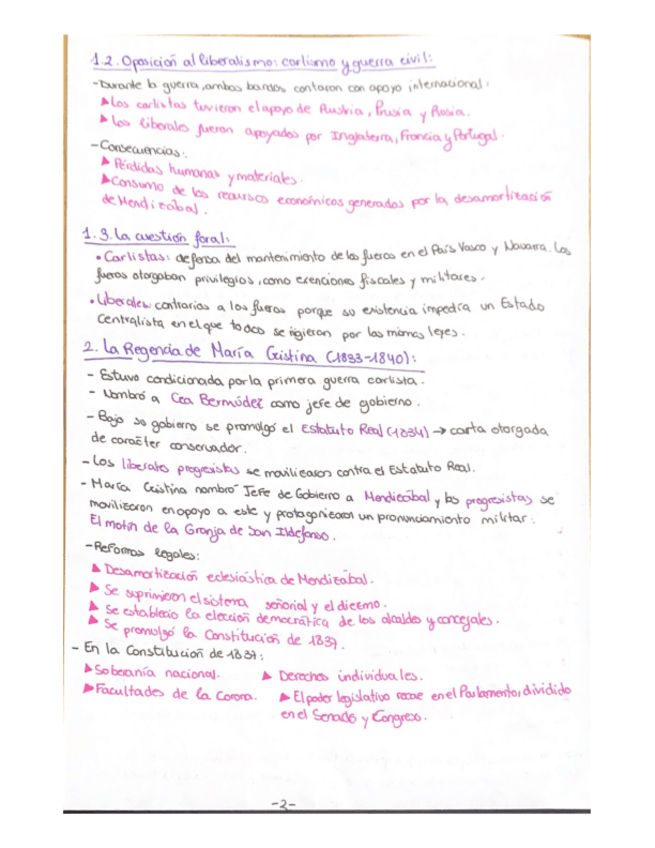 1.2. Oposición al liberalismo: carlismo y guerra civil:
-Durante la guerra, ambos bandos contaron con apoyo internacional.
▶Los carlistas tuvieron el apoyo de Austria, Prusia y Rusia.
▶Los liberales fueron apoyados por Inglaterra, Francia y Portugal.
-Consecuencias:
▶Pérdidas humanas y materiales.
▶Consumo de los recursos económicos generados por la desamortización
de Mendizábal.
1.3. La cuestión foral:
•Carlistas: defensa del mantenimiento de los fueros en el País Vasco y Navarra. Los
fueros otorgaban privilegios, como exenciones fiscales y militares.
•Liberales: contrarios a los fueros porque su existencia impedía un Estado
centralista en el que todos se rigieran por las mismas leyes.
2. La Regencia de María Cristina (1833-1840):
- Estuvo condicionada por la primera guerra carlista.
- Nombró a Cea Bermúdez como jefe de gobierno.
- Bajo su gobierno se promulgó el Estatuto Real (1834) → carta otorgada
de carácter conservador.
- Los liberales progresistas se movilizaron contra el Estatuto Real.
- María Cristina nombró Jefe de Gobierno a Mendizábal y los progresistas se
movilizaron en apoyo a este y protagonizaron un pronunciamiento militar:
El motín de la Granja de San Ildefonso.
-Reformas legales:
▶Desamortización eclesiástica de Mendizábal.
▶Se suprimieron el sistema señorial y el diezmo.
▶Se estableció la elección democrática de los alcaldes y concejales.
▶Se promulgó la Constitución de 1837.
- En la Constitución de 1837:
▶Soberanía nacional. ▶Derechos individuales.
▶Facultades de la Corona. ▶El poder legislativo recae en el Parlamento, dividido
en el Senado y Congreso.
-2-